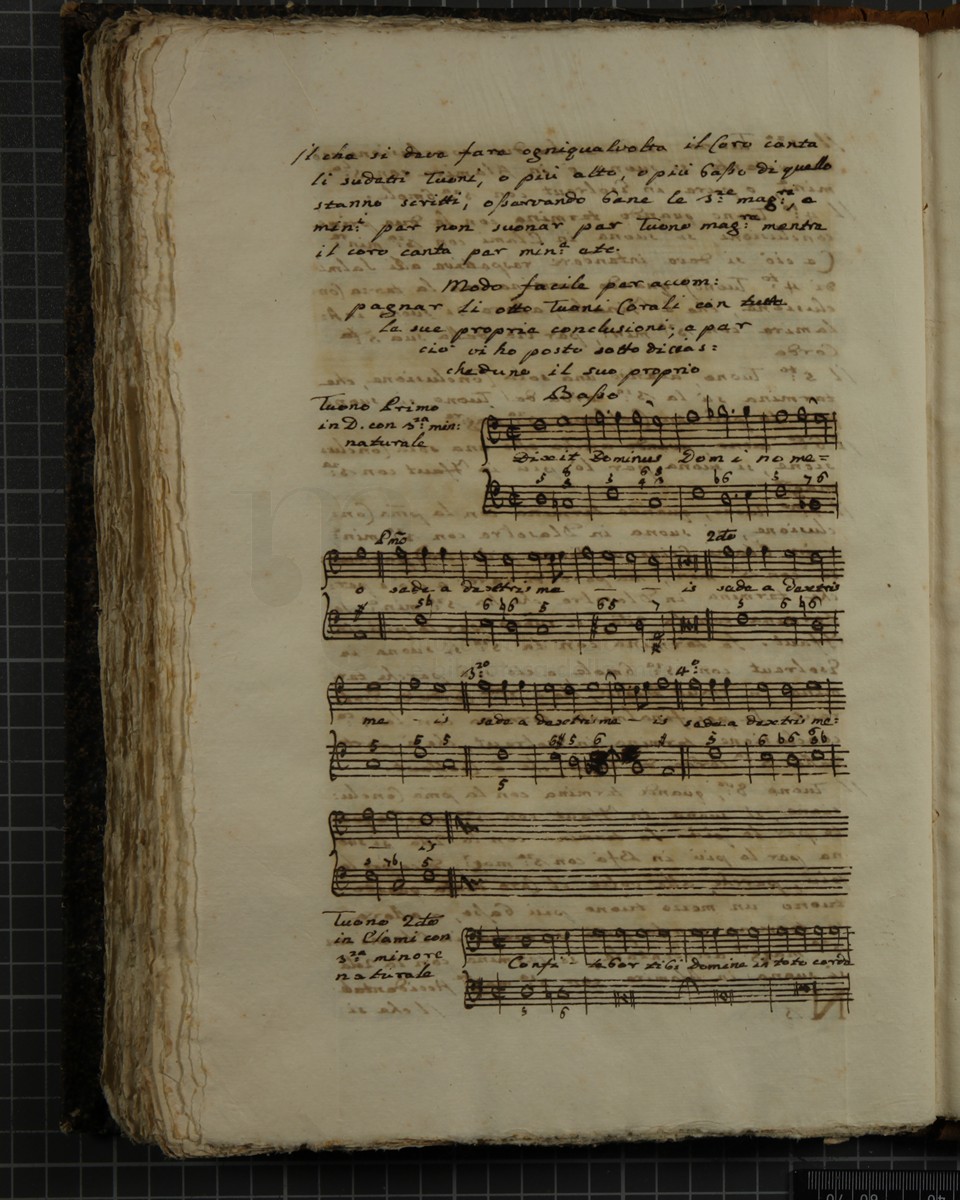 Il che si deve fare ogniqualvolta il Coro canta
li sudetti Tuoni, o più alto, o più basso di quello
stanno scritti, osservando bene le 3:ze mag:re, e
min:i per non suonar per Tuono mag:re mentre
il coro canta per min:e etc:
Modo facile per accom:
pagnar li otto Tuoni Corali con tutte
le sue proprie conclusioni; e per
ciò vi ho posto sotto di cias:
cheduno il suo proprio
Basso
Tuono Primo
in D. con 3:za min:
naturale
Dixit Dominus Domino me=
5 8 6 3 6 8 b6 5 7 6
Pmo 2do
o sede a dextris me — — is sede a dextris
# 5b 6 b6 5 65 7 5 6 b6
3:zo 4:o
me - is sede a dextris me — is sede a dextris me:
5 6 5 6 5 6 # 5 6 b6
5
— is
5 76 5
Tuono 2do
in Elami con
3:za minore
naturale
Confi tebor tibi Domine in toto corde
5 6